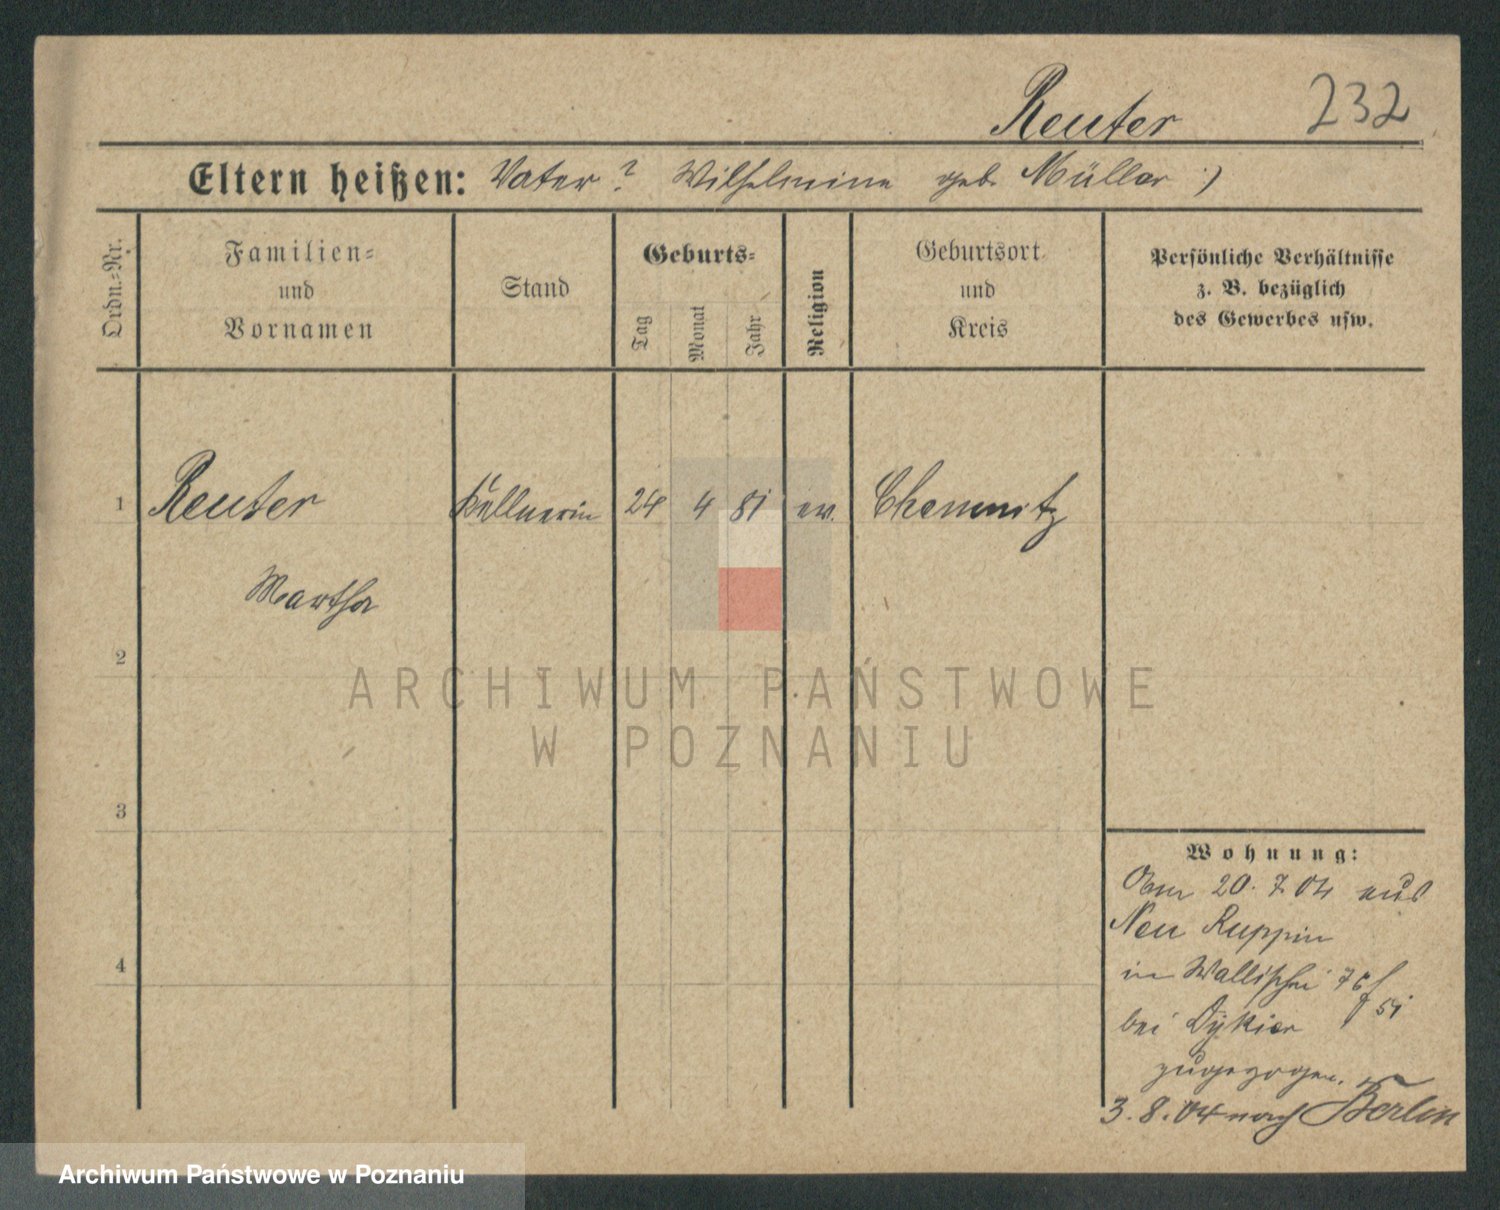 Reuter 232
Eltern heißen: Vater? Wilhelmine geb. Müller
Ordn.=Nr.
Familien=
und
Vornamen
Stand
Geburts=
Tag
Monat
Jahr
Religion
Geburtsort
und
Kreis
Persönliche Verhältnisse
z. B. bezüglich
des Gewerbes usw.
1 Reuter Kellnerin 24 4 81 ev. Chemnitz
Martha
2
3
4
Wohnung:
20. 7. 04 aus
Neu Ruppin
in Wallischei 76
bei
zugezogen.
3. 8. 04 nach Berlin
ARCHIWUM PAŃSTWOWE
W POZNANIU
Archiwum Państwowe w Poznaniu